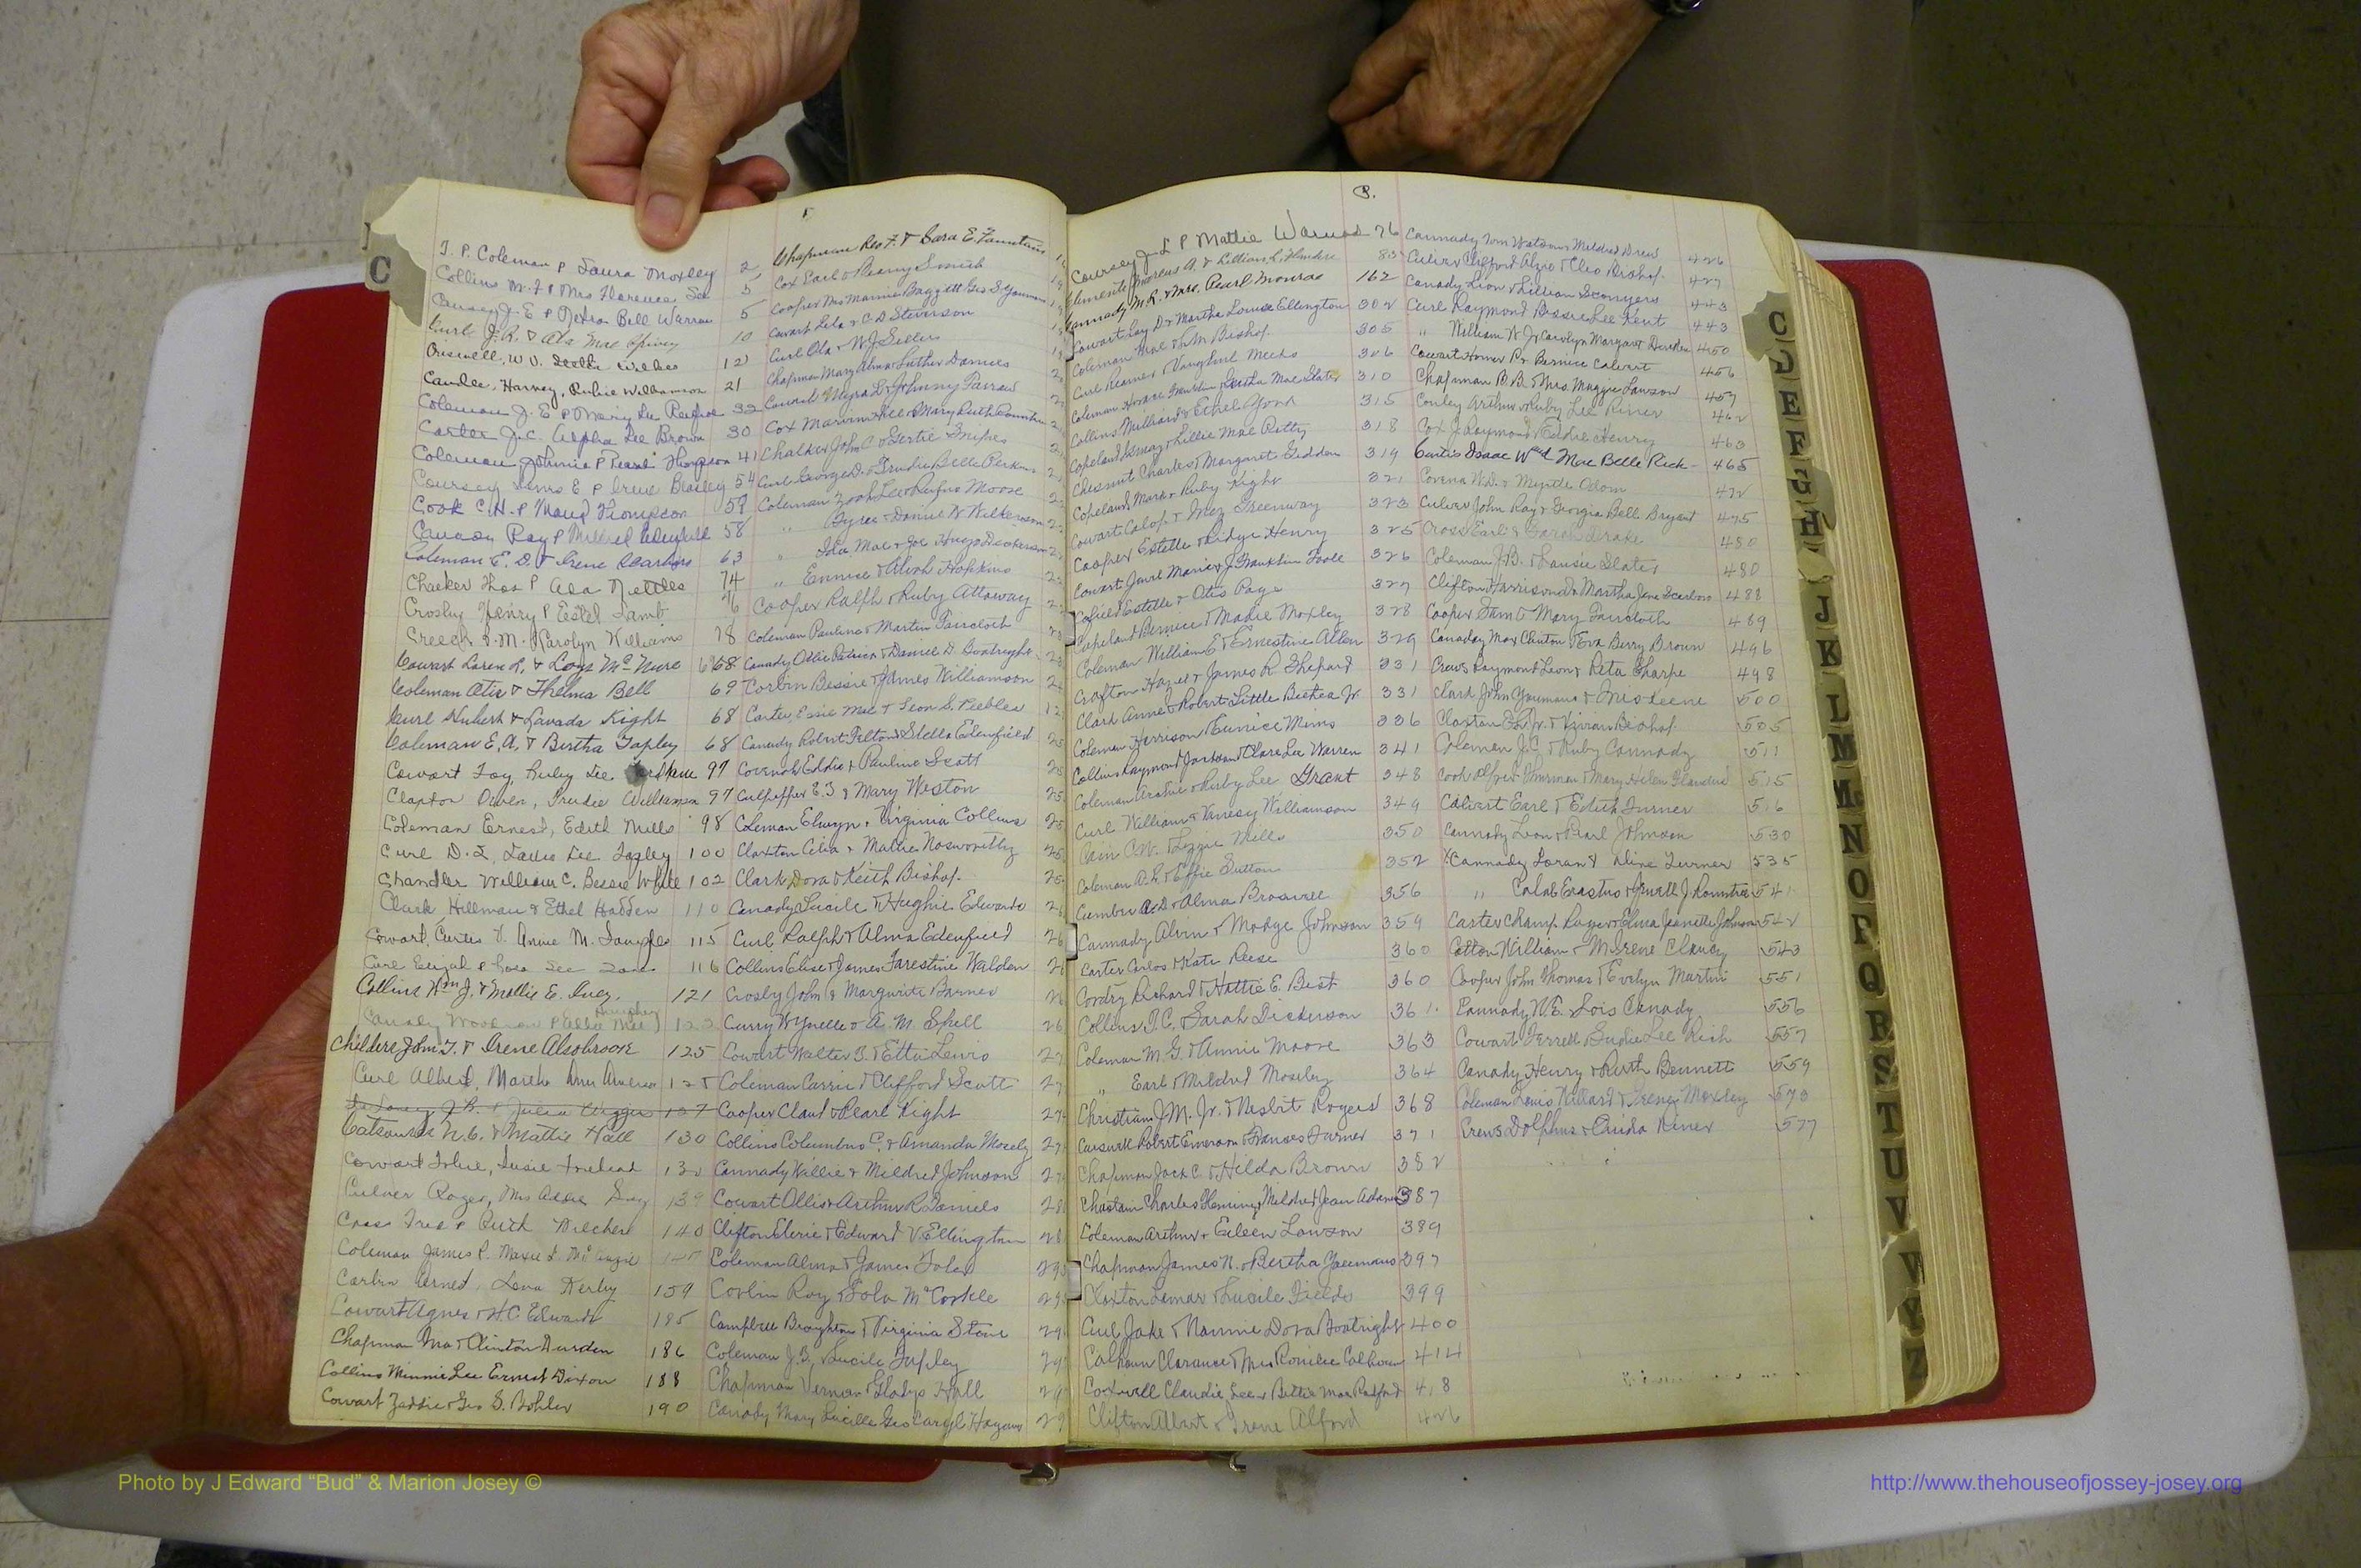 C
T. P. Coleman P Laura Moxley 2
Collins M. F. P Mrs Florence 5
J. E P Bell Warren 5
Curl J. R. & Ola Mae Spivey 10
Criswell, W. O. Wilkes 12
Harvey, Rubie Williamson 21
Coleman J. E P Mary Lee Renfroe 32
Carter J. C. Alpha Lee Brown 30
Coleman Johnnie P Pearl Thompson 41
Coursey E P Irene Beasley 54
Cook C. H. P Maud Thompson 59
Canady Ray P Mildred 58
Coleman E. D. & Irene 63
Thos P Ala Nettles 74
Crosby Henry P Estel Lamb 76
Creech I. M. Karolyn Williams 78
Cowart Loren L. & Loys 68
Coleman Otis & Thelma Bell 69
Curl Hubert & Lavada Kight 68
Coleman E. A. & Bertha Tapley 68
Cowart Foy, Ruby Lee 97
Claxton Owen, Trudie Williamson 97
Coleman Ernest, Edith Mills 98
Curl D. L, Lee Tapley 100
Chandler William C. Bessie White 102
Clark Hillman & Ethel Hadden 110
Cowart, Curtis V. Annie M. 115
Curl Elizah P Lee 116
Collins Wm J. & Mollie E. 121
Canady Woodrow P Mae 122
Childers John T. & Irene Alsobrook 125
Curl Albert, Ann 125
J. B. P 127
N. C. & Mattie Hall 130
Cowart Susie 130
Culver Roger, Mrs Addie 139
Cross P Ruth 140
Coleman James P.
Corbin Ernest, Lena Kerby 159
Cowart Agnes & H. C. Edwards 185
Chapman & Clinton Durden 186
Collins Minnie Lee Ernest Dixon 188
Cowart Zaddie & Geo S. Bohler 190
Chapman Geo F. & Sara E. Fountain
Cox Earl & Smith
Cooper Mrs Mamie Baggett Geo S. Youmans
Cowart Lela & C D Stevenson
Curl Ola & W J Sellers
Chapman Mary Alma & Luther Daniels
Cowart Myra L & Johnny Farrow
Cox Marvin Lee & Mary Ruth
Chalker John C & Gertie Snipes
Curl George D. & Trudie Belle Perkins
Coleman Zoah Lee & Rufus Moore
" & Daniel W Wilkerson
" Iola Mae & Joe Hugo Dickerson
" Ennice & Alvah Hopkins
Cooper Ralph & Ruby Attaway
Coleman Pauline & Martin Faircloth
Canady Ollie Patrica & Daniel D. Boatright
Corbin Bessie & James Williamson
Carter, Essie Mae & Leon S. Peebles
Canady Robert Felton & Stella Edenfield
Eddie & Pauline Scott
Culpepper E. J & Mary Weston
Coleman Elwyn & Virginia Collins
Claxton Celia & Mattie Nosworthy
Clark Dora & Keith Bishop
Canady Lucile & Hughie Edwards
Curl Ralph & Alma Edenfield
Collins Elise & James Farestine Walden
Crosby John & Margurite Barnes
Curry Wynelle & A. M. Spell
Cowart Walter B. & Etta Lewis
Coleman Carrie & Clifford Scott
Cooper Claud & Pearl Kight
Collins Columbus C. & Amanda Mosely
Cannady Willie & Mildred Johnson
Cowart Ollis & Arthur R. Daniels
Clifton Elerie & Edward V Ellington
Coleman Alma & James Toler
Corbin Roy & Lola McCorkle
Campbell Broughton & Virginia Stone
Coleman J. B, Lucile Tapley
Chapman Vernon & Gladys Hall
Canady Mary Lucille Geo Cargil Hagans
C.
Coursey J. L P Mattie Warren 76
Clements Thomas A. & Lillian L. 83
Cannady M. R. & Mrs. Pearl Monroe 162
Cowart Coy D & Martha Louise Ellington 302
Coleman Mae & Bishop 305
Curl Reamer & Meeks 306
Coleman Horace Franklin & Letha Mae Slater 310
Collins Milliard & Ethel York 315
Copeland & Lillie Mae Petty 318
Chesnut Charles & Margaret Giddens 319
Copeland Mark & Ruby Kight 321
Cowart Calop & Inez Greenway 323
Cooper Estelle & Ridge Henry 325
Cowart Jewel Marie & J Franklin Toole 326
Estelle & Otis Page 327
Copeland Bernice & Madie Moxley 328
Coleman William E & Ernestine Allen 329
Crofton Hazel & James R. Shepard 331
Clark Anne & Robert Little Bestea Jr. 331
Coleman Harrison & Eunice Mims 336
Collins Raymond Jackson & Clare Lee Warren 341
Coleman Archie & Ruby Lee Grant 348
Curl William & Vanesy Williamson 349
Cain C. W. & Lizzie Mills 350
Coleman A. R. & Effie Sutton 352
& Alma Braswell 356
Cannady Alvin & Madge Johnson 359
Carter Carlos & Kate Reese 360
Cordry Richard & Hattie E. Best 360
Collins T. C. & Sarah Dickerson 361
Coleman M. G. & Annie Moore 363
" Earl & Mildred Moseley 364
Christian J. M. Jr. & Nesbit Rogers 368
Carswell Robert Emerson & Frances Turner 371
Chapman Jack C. & Hilda Brown 382
Chastain Charles Fleming & Mildred Jean Adams 387
Coleman Arthur & Eileen Lawson 389
Chapman James N. & Bertha Youmans 397
Claxton Lemar & Lucile Fields 399
Curl Jake & Nannie Dora Boatright 400
Calhoun Clarance & Mrs Ronilee Calhoun 414
Coxwell Claudie Lee & Bettie Mae Radford 418
Clifton Albert & Irene Alford 426
Cannady Tom Watson & Mildred Drew 426
Culver Clifford Alzo & Cleo Bishop 427
Canady Leon & Lillian Sconyers 443
Curl Raymond & Bessie Lee Kent 443
" William W Jr & Carolyn Margaret Durden 450
Cowart Homer P & Bernice Calvert 456
Chapman B. B. & Mrs. Maggie Lawson 457
Conley Arthur & Ruby Lee Riner 462
Cox J. Raymond & Eddie Henry 463
Curtis Isaac Wm & Mae Belle Rich 465
W. D. & Myrtle Odom 472
Culver John Ray & Georgia Belle Bryant 475
Cross Earl & Sarah Drake 480
Coleman J. B. & Slater 480
Clifton Harrison & Martha Jane Scarboro 488
Cooper Sam & Mary Faircloth 489
Canaday Max Clinton & Eva Berry Brown 496
Crews Raymond Leon & Reta Sharpe 498
Clark John Youmans & Inis Keene 500
Claxton Jr. & Vivian Bishop 505
Coleman J. C. & Ruby Cannady 511
Cook Alfred Thurman & Mary Helen 515
Calvert Earl & Edith Turner 516
Cannady Leon & Pearl Johnson 530
Cannady Loran & Aline Turner 535
" Calab Erastus & Jewell J. Rountree 541
Carter Champ Roger & Elma Jeanette Johnson 542
Cotton William & M. Irene Clancy 543
Cooper John Thomas & Evelyn Martin 551
Cannady W. E. Lois Canady 556
Cowart Ferrell & Sudie Lee Rich 557
Canady Henry & Ruth Bennett 559
Coleman Louis Willard & Irene Moxley 573
Crews Dolphus & Ouida Riner 577
C
D
E
F
G
H
J
K
L
M
Mc
N
O
P
Q
R
S
T
U
V
W
Y
Z
Photo by J Edward “Bud” & Marion Josey ©
http://www.thehouseofjossey-josey.org